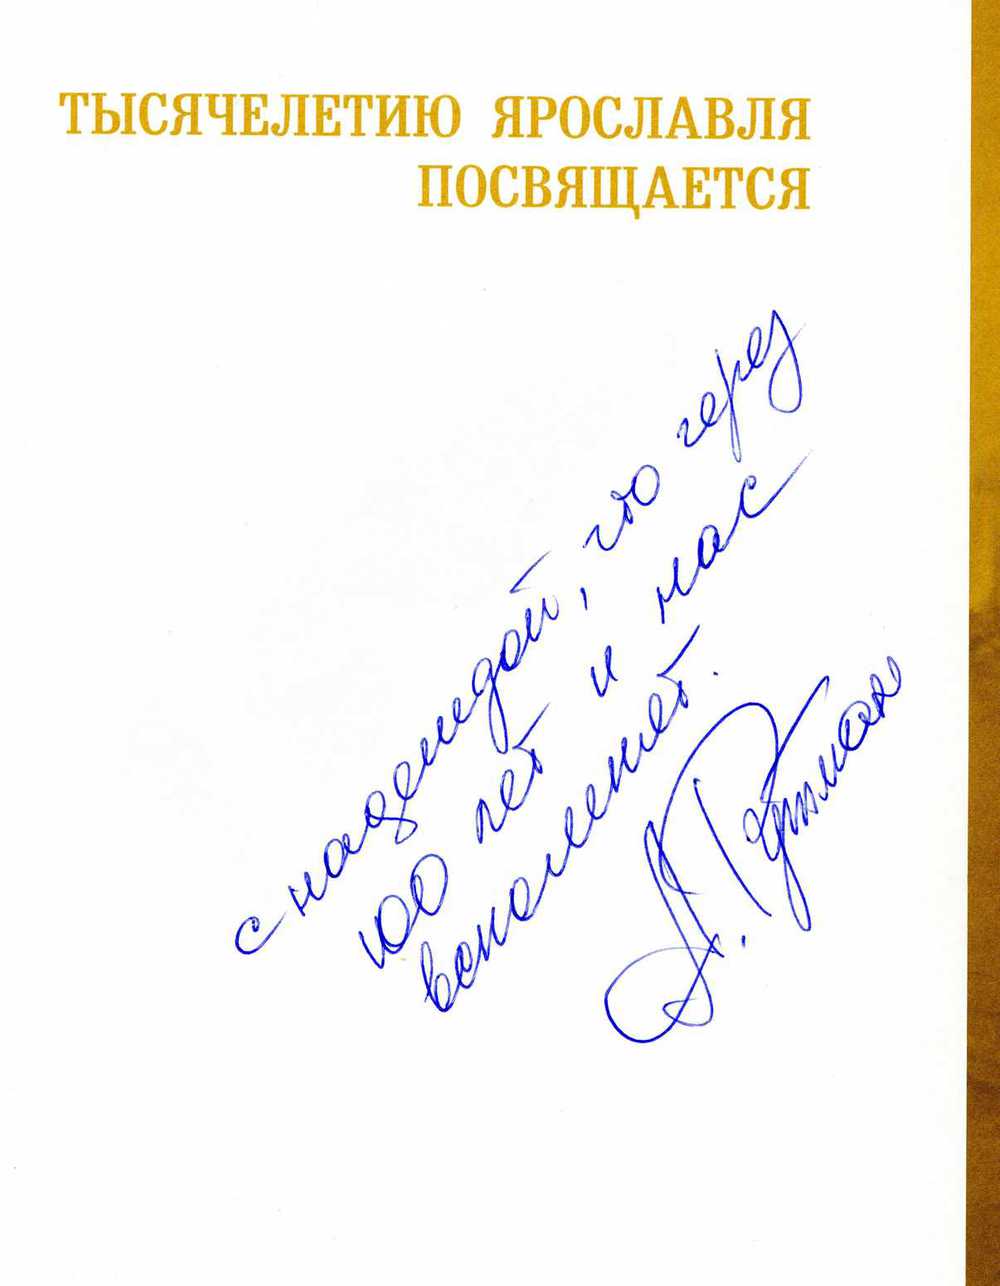 ТЫСЯЧЕЛЕТИЮ ЯРОСЛАВЛЯ
ПОСВЯЩАЕТСЯ
с надеждой, что через
100 лет и нас
вспомнят.